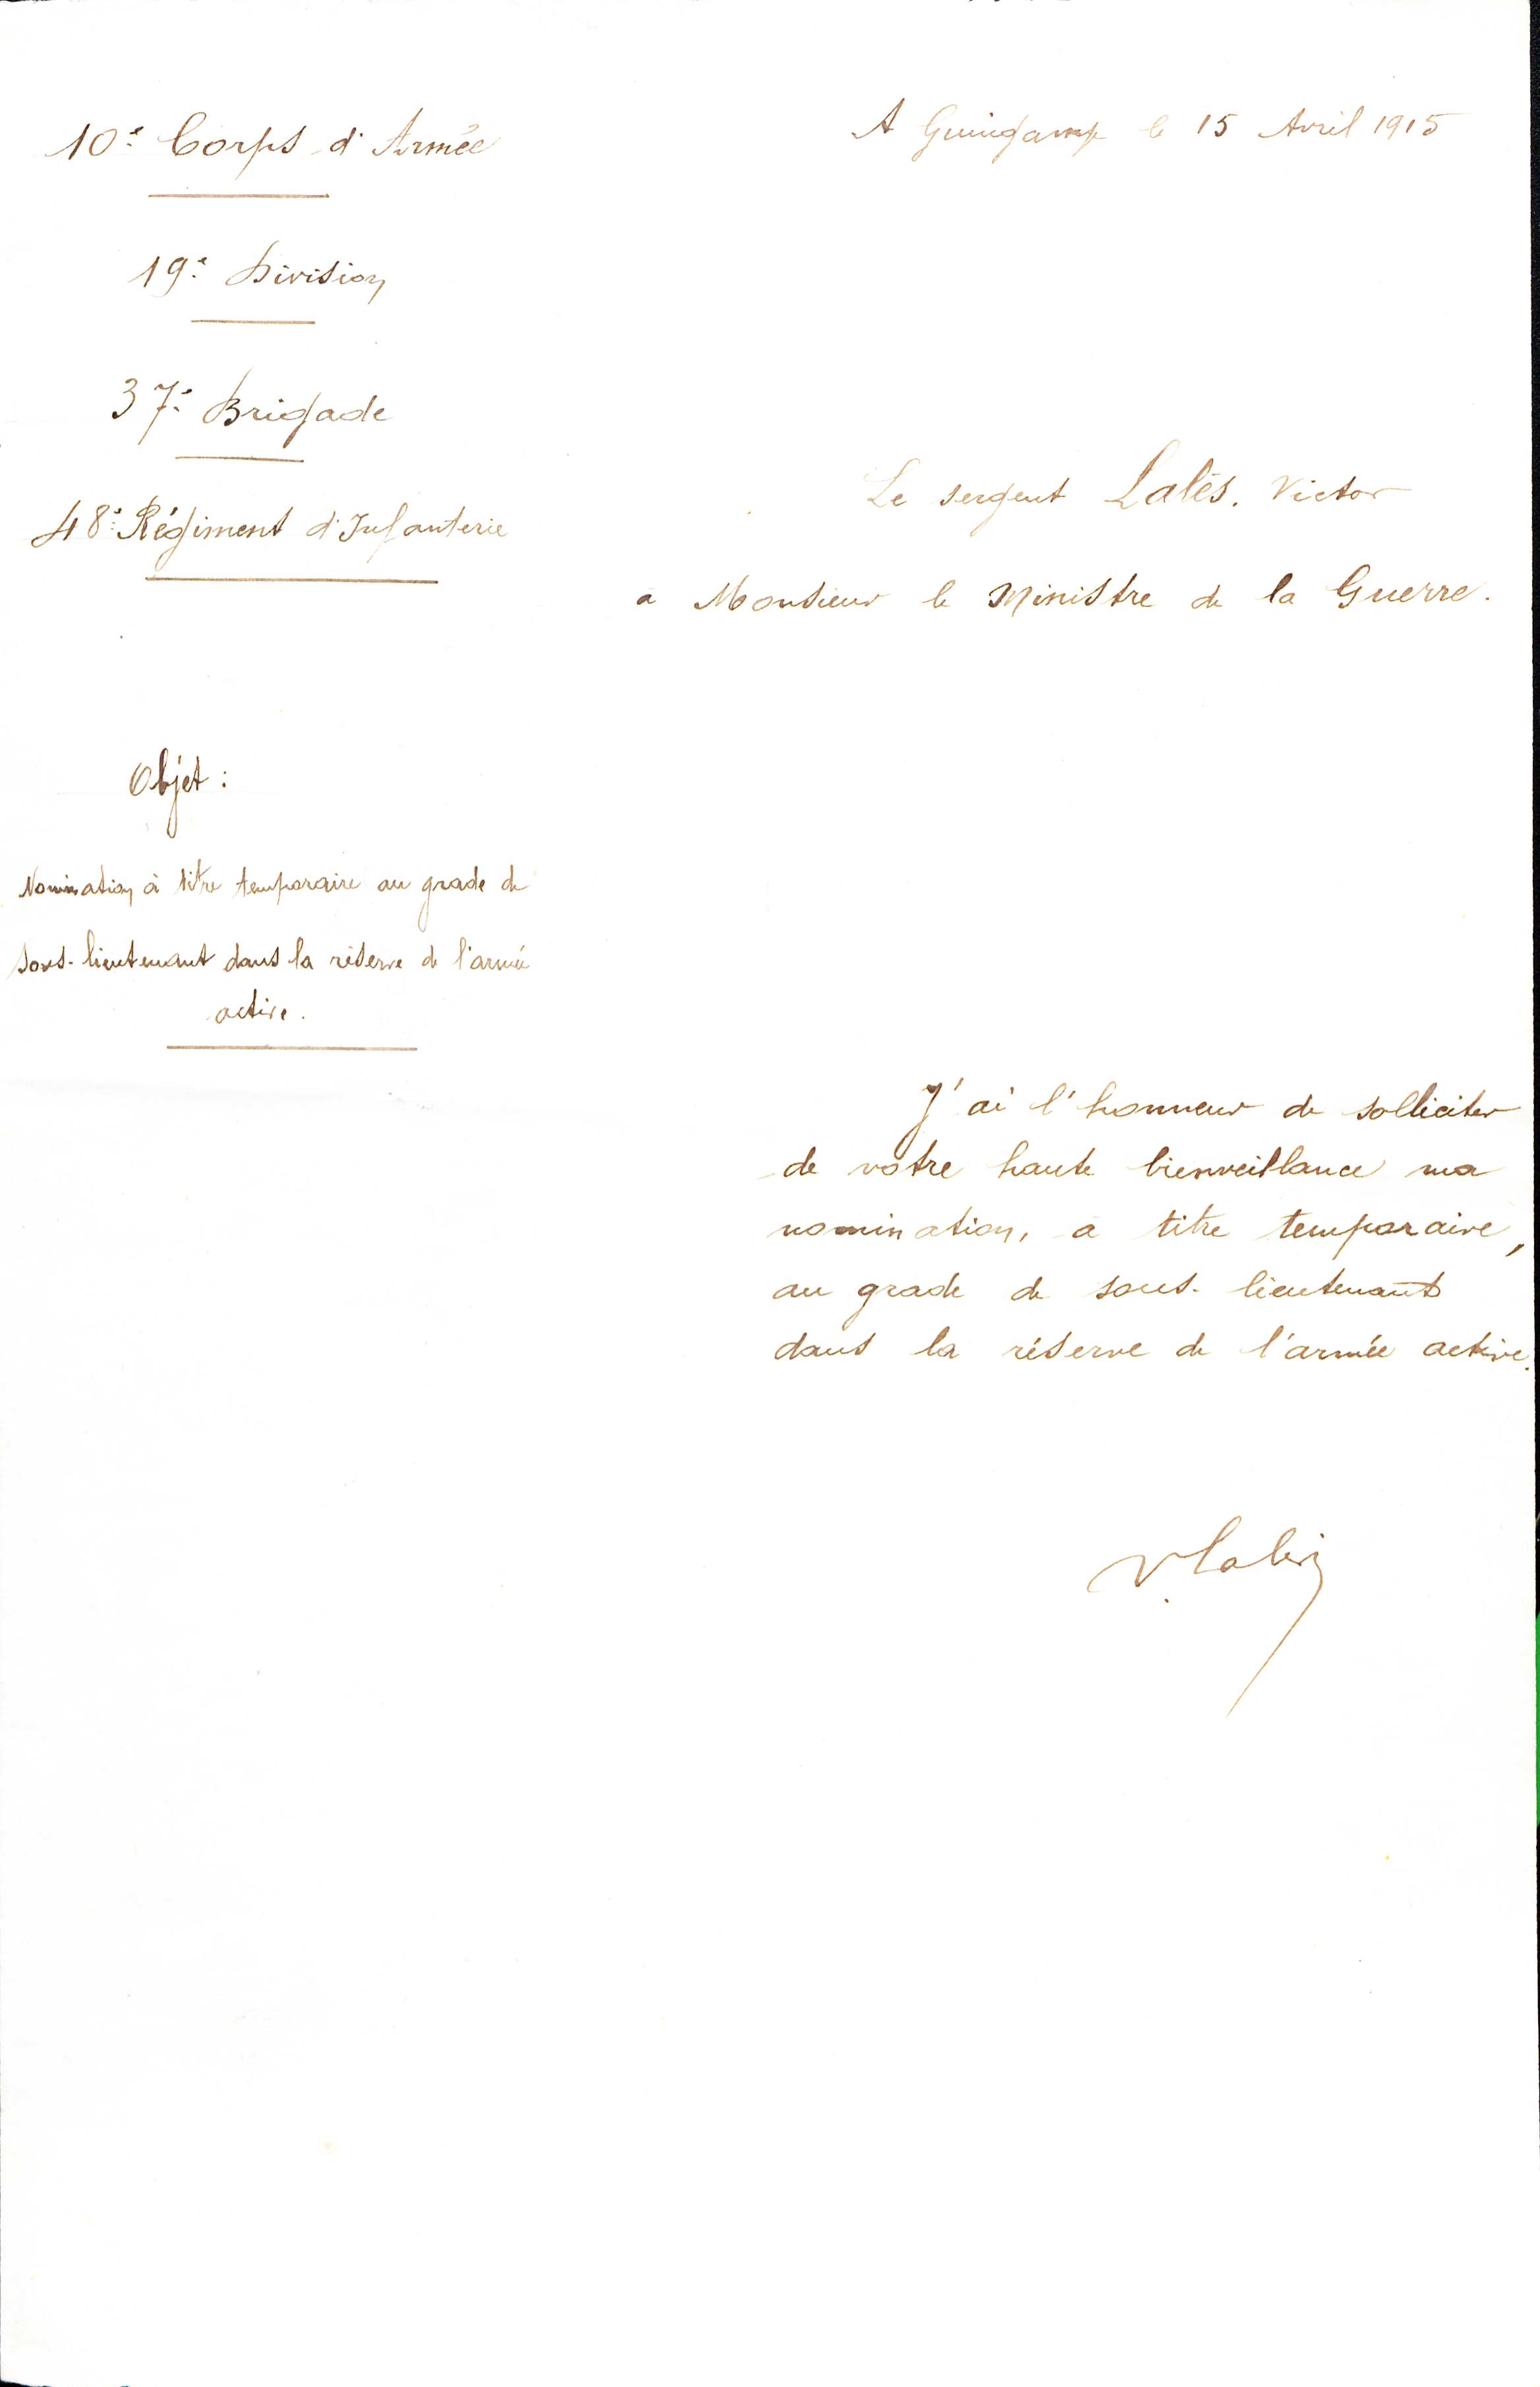 10e Corps d'Armée
A Guingamp le 15 Avril 1915
19e Division
37e Brigade
48e Régiment d'Infanterie
Le sergent Lalès. Victor
a Monsieur le Ministre de la Guerre.
Objet :
Nomination à titre temporaire au grade de
sous-lieutenant dans la réserve de l'armée
active.
J'ai l'honneur de solliciter
de votre haute bienveillance ma
nomination, a titre temporaire,
au grade de sous-lieutenant
dans la réserve de l'armée active.
V. Lalès